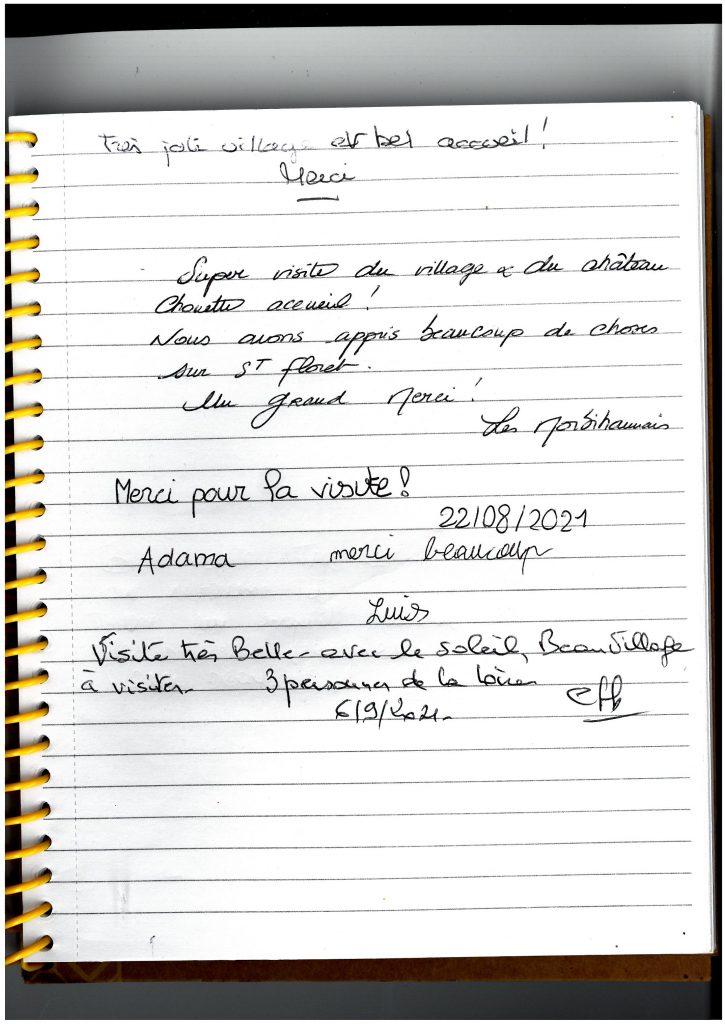 Très joli village et bel accueil !
Merci
Super visite du village & du château
Chouette accueil !
Nous avons appris beaucoup de choses
sur St floret.
Un grand merci !
Les Morbihannais
Merci pour la visite !
22/08/2021
Adama merci beaucoup
Luis
Visite très Belle - avec le soleil, Beau Village
à visiter - 3 personnes de la Loire
6/9/2021 -